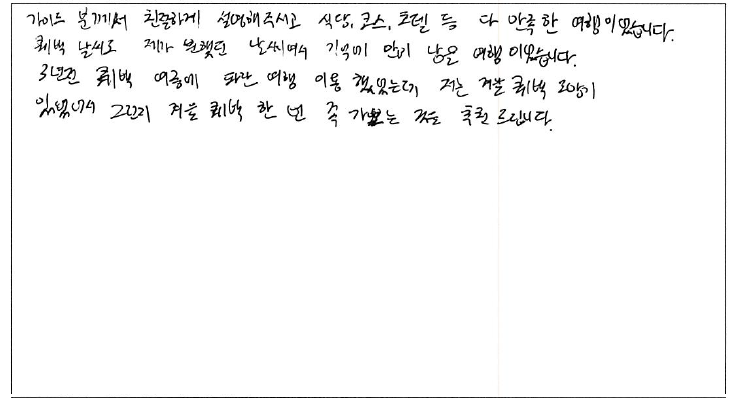 가이드 분께서 친절하게 설명해주시고 식당, 코스, 호텔 등 다 만족한 여행이었습니다.
퀘벡 날씨도 제가 원했던 날씨여서 기억에 많이 남은 여행이었습니다.
3년전 퀘벡 여름에 파란 여행 이용 했었는데, 저는 겨울 퀘벡
있었어서 그런지 겨울 퀘벡 한 번 쯤 가보는 것을 추천 드립니다.